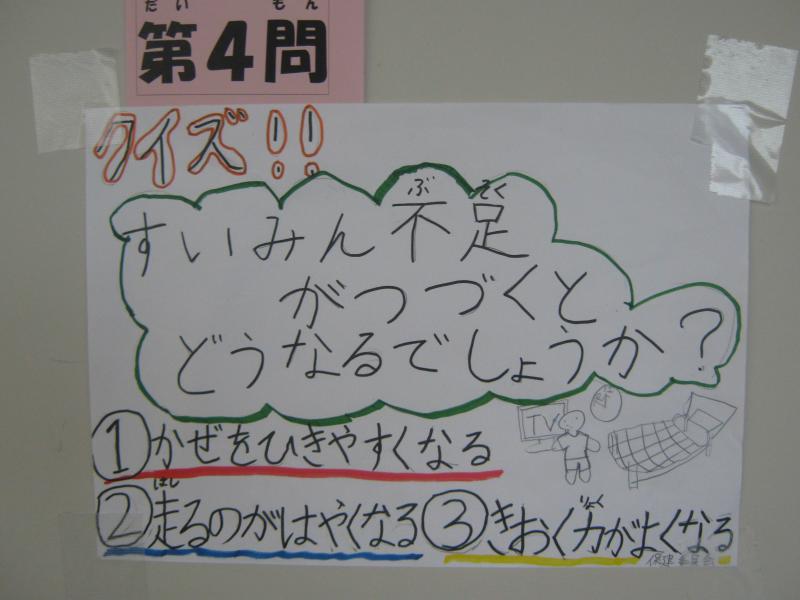 だい もん
第4問
クイズ!!
ぶ そく
すいみん不足
がつづくと
どうなるでしょうか?
TV
①かぜをひきやすくなる
はし
②走るのがはやくなる
りょく
③きおく力がよくなる
保健委員会